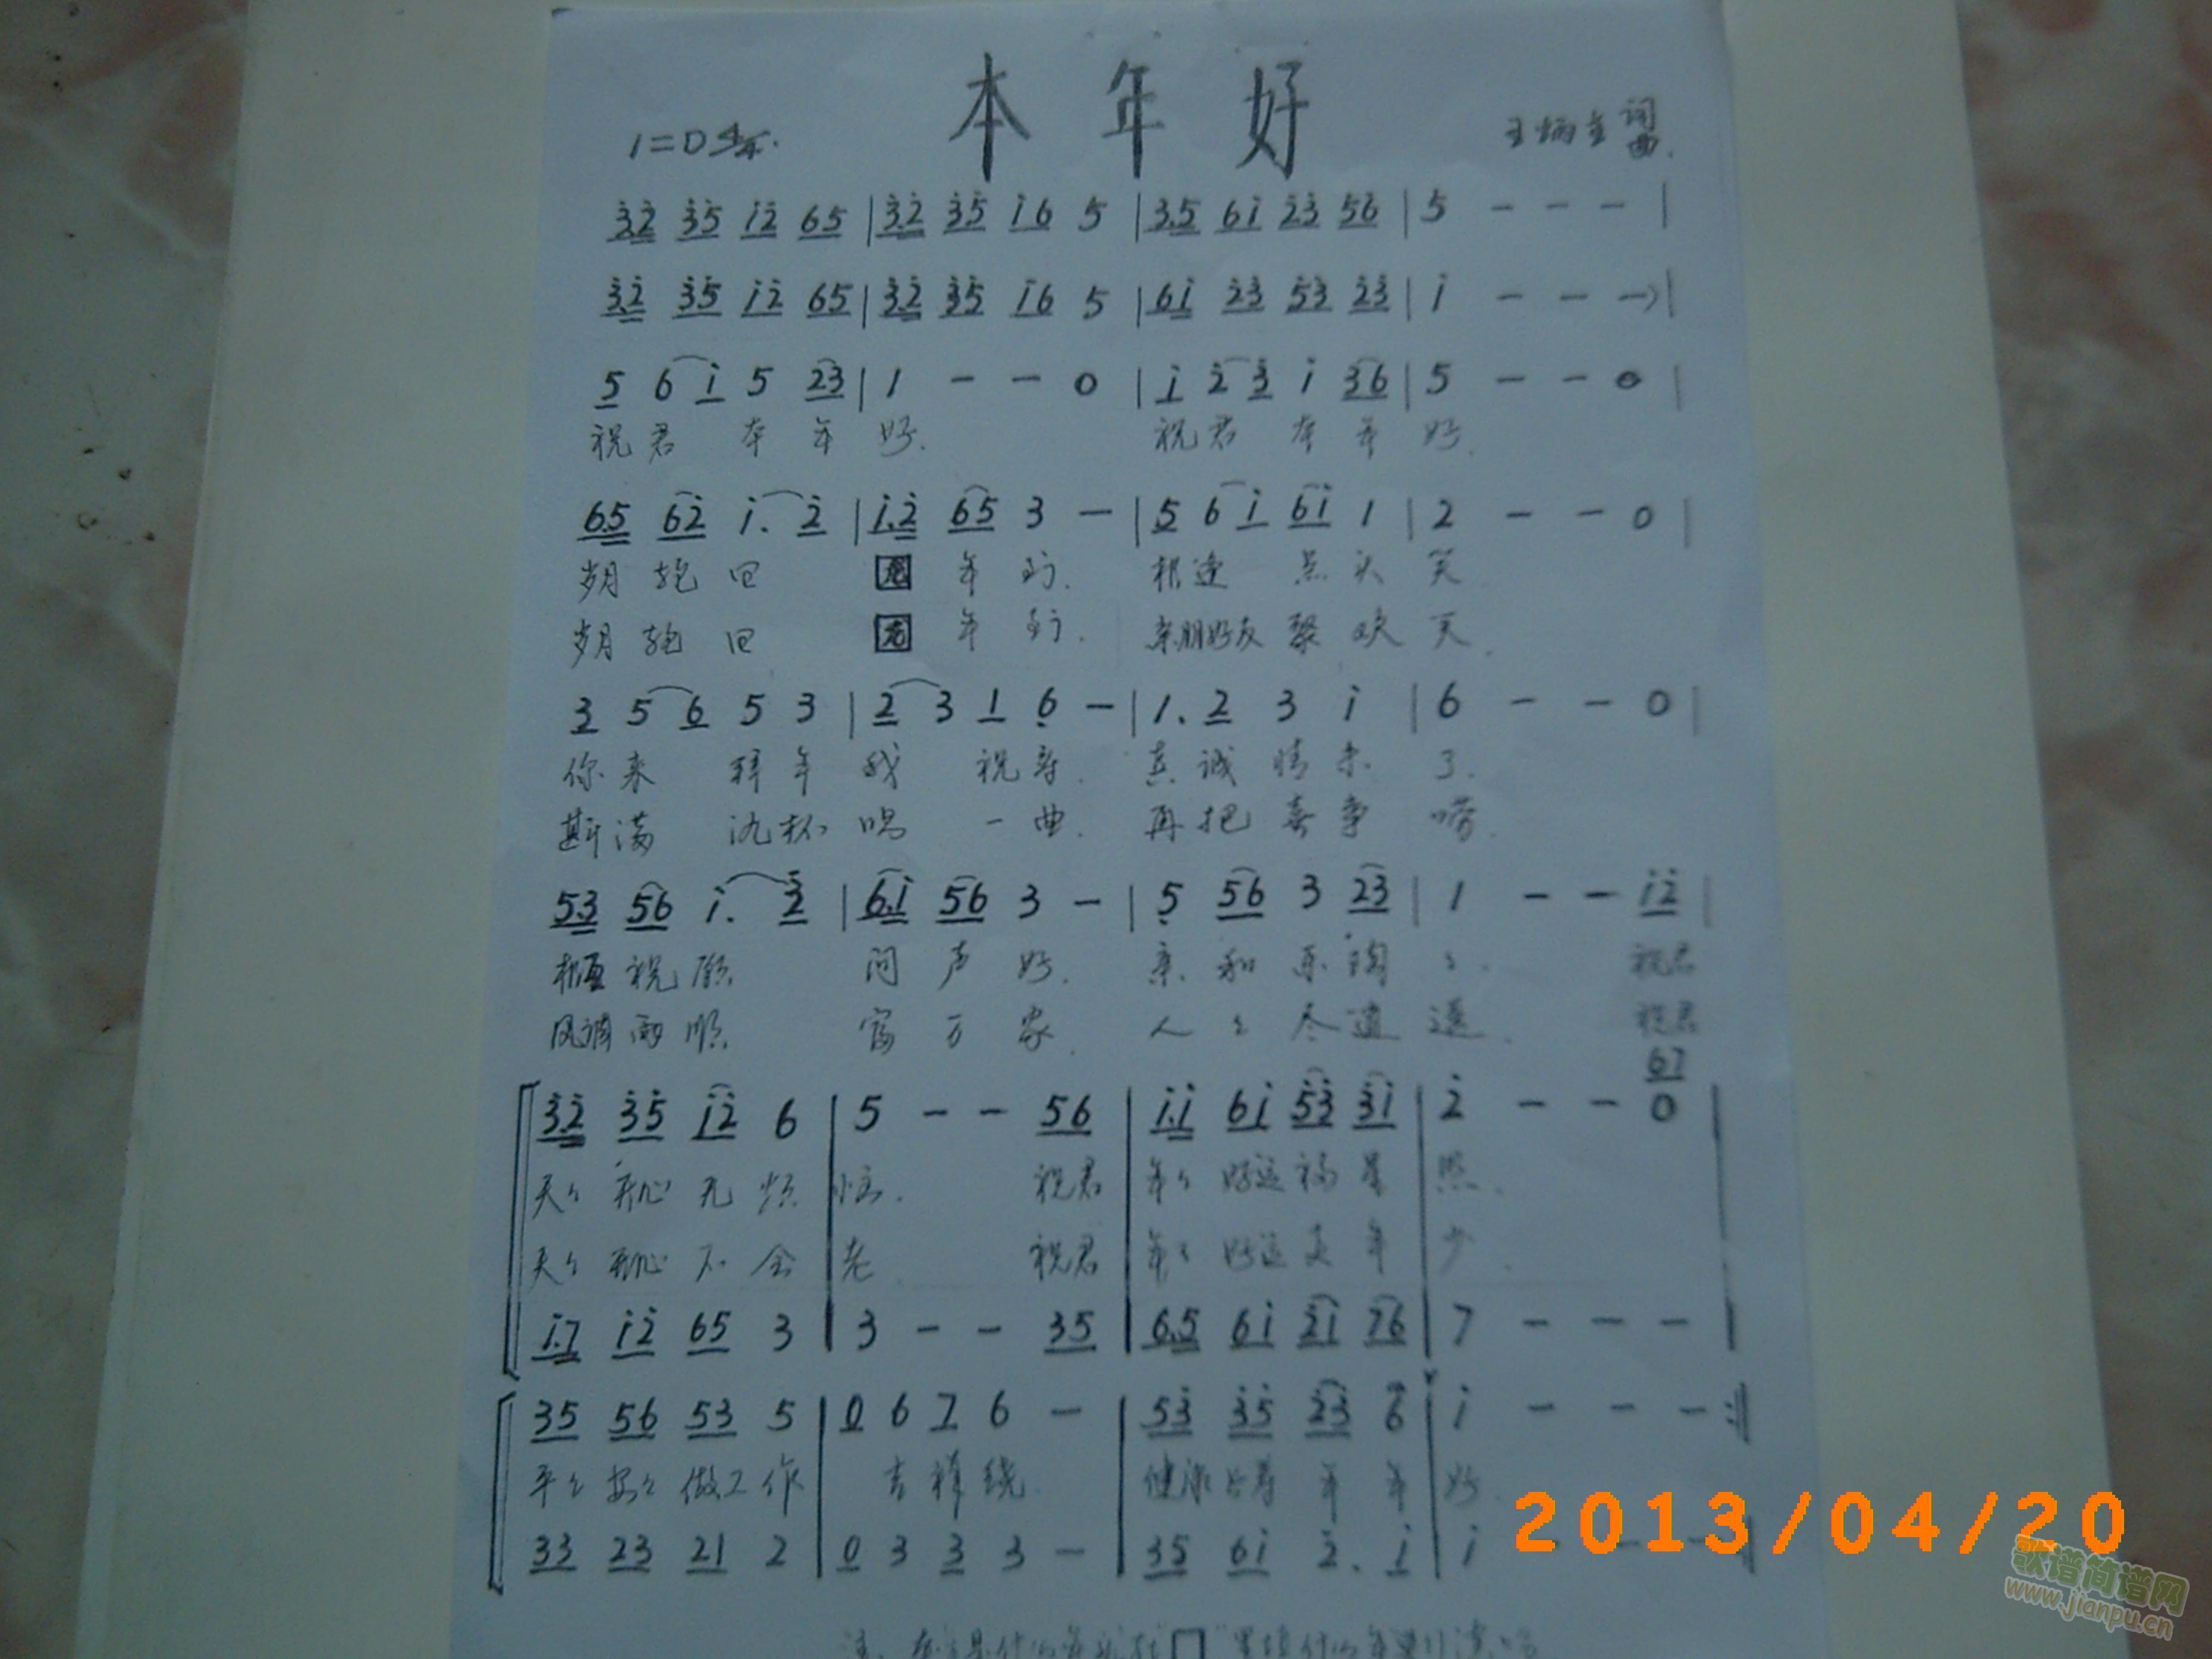 本 年 好
1=D 4/4
词
曲
3.2 35 12 65 | 3.2 35 16 5 | 3.5 61 23 56 | 5 - - - |
3.2 35 12 65 | 3.2 35 16 5 | 61 23 53 23 | 1 - - - |
5 6 1 5 23 | 1 - - 0 | 1 2 3 1 36 | 5 - - 0 |
祝君 本 年 好. 祝君 本 年 好.
6.5 62 1. 2 | 1.2 65 3 - | 5 6 1 61 1 | 2 - - 0 |
岁月 轮 回 龙 年 到. 相逢 点 头 笑
岁月 轮 回 龙 年 到. 亲朋好友 聚 欢
3 5 6 5 3 | 2 3 1 6 - | 1. 2 3 1 | 6 - - 0 |
你来 拜年 我 祝寿. 真诚情未 了.
斟满 沈杯 唱 一曲. 再把喜事 唠.
5.3 56 1. 2 | 6.1 56 3 - | 5 56 3 23 | 1 - - 12 |
相互 祝愿 问 声 好. 亲 和 乐 陶 祝君
风调雨顺 富 万 家. 人 尽 逍 遥. 祝君
67
3.2 35 12 6 | 5 - - 56 | 1.1 61 53 31 | 2 - - 0 |
天 开心 无 烦 恼. 祝君 年 好运 福 星 照.
天 开心 不 会 老 祝君 年 好运 更 年 少.
1.7 12 65 3 | 3 - - 35 | 6.5 61 21 76 | 7 - - - |
35 56 53 5 | 0 6 7 6 - | 53 35 23 6 | 1 - - - :|
平 安 做工作 吉祥绕. 健康 年 年 好.
33 23 21 2 | 0 3 3 3 - | 35 61 2. 1 | 1 - - - |
2013/04/20
歌谱简谱网
www.jianpu.cn